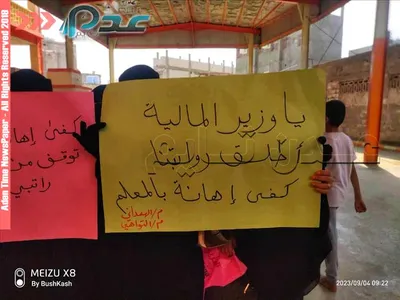 عدن
Aden Time NewsPaper - All Rights Reserved 2018
يا وزير المالية
أطلق رواتبنا
كفى إهانة بالمعلم
م/البعداني
م/التواهي
كفى إها
توقف من
راتبي
MEIZU X8
By BushKash
2023/09/04 09:22